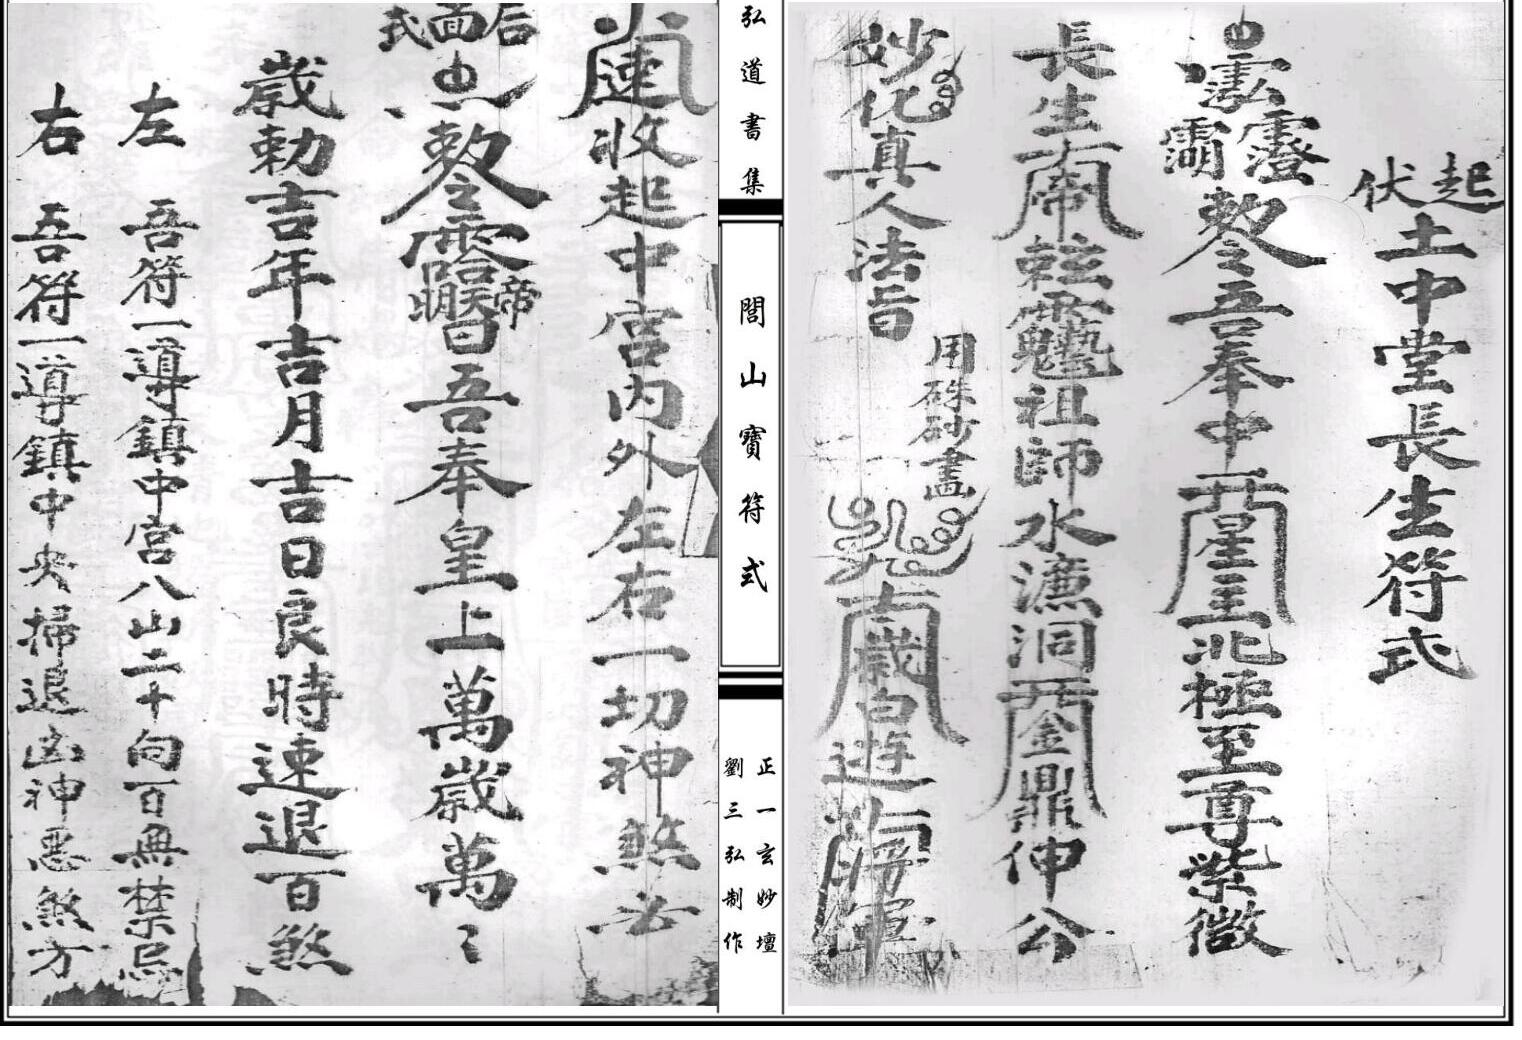 起伏土中堂長生符式
敕令吾奉中星主北極至尊紫微
長生帝祖師水濂洞金鼎仲公
妙化真人法旨
用硃砂畫
歲白遊
弘道書集
閭山寶符式
正一玄妙壇
劉三弘制作
收起中宮内外左右一切神煞公
后面式
敕令吾奉皇上萬歲萬〻
歲勅吉年吉月吉日良時速退百煞
左 吾符一導鎮中宮八山二十向百無禁忌
右 吾符一導鎮中央掃退凶神惡煞方